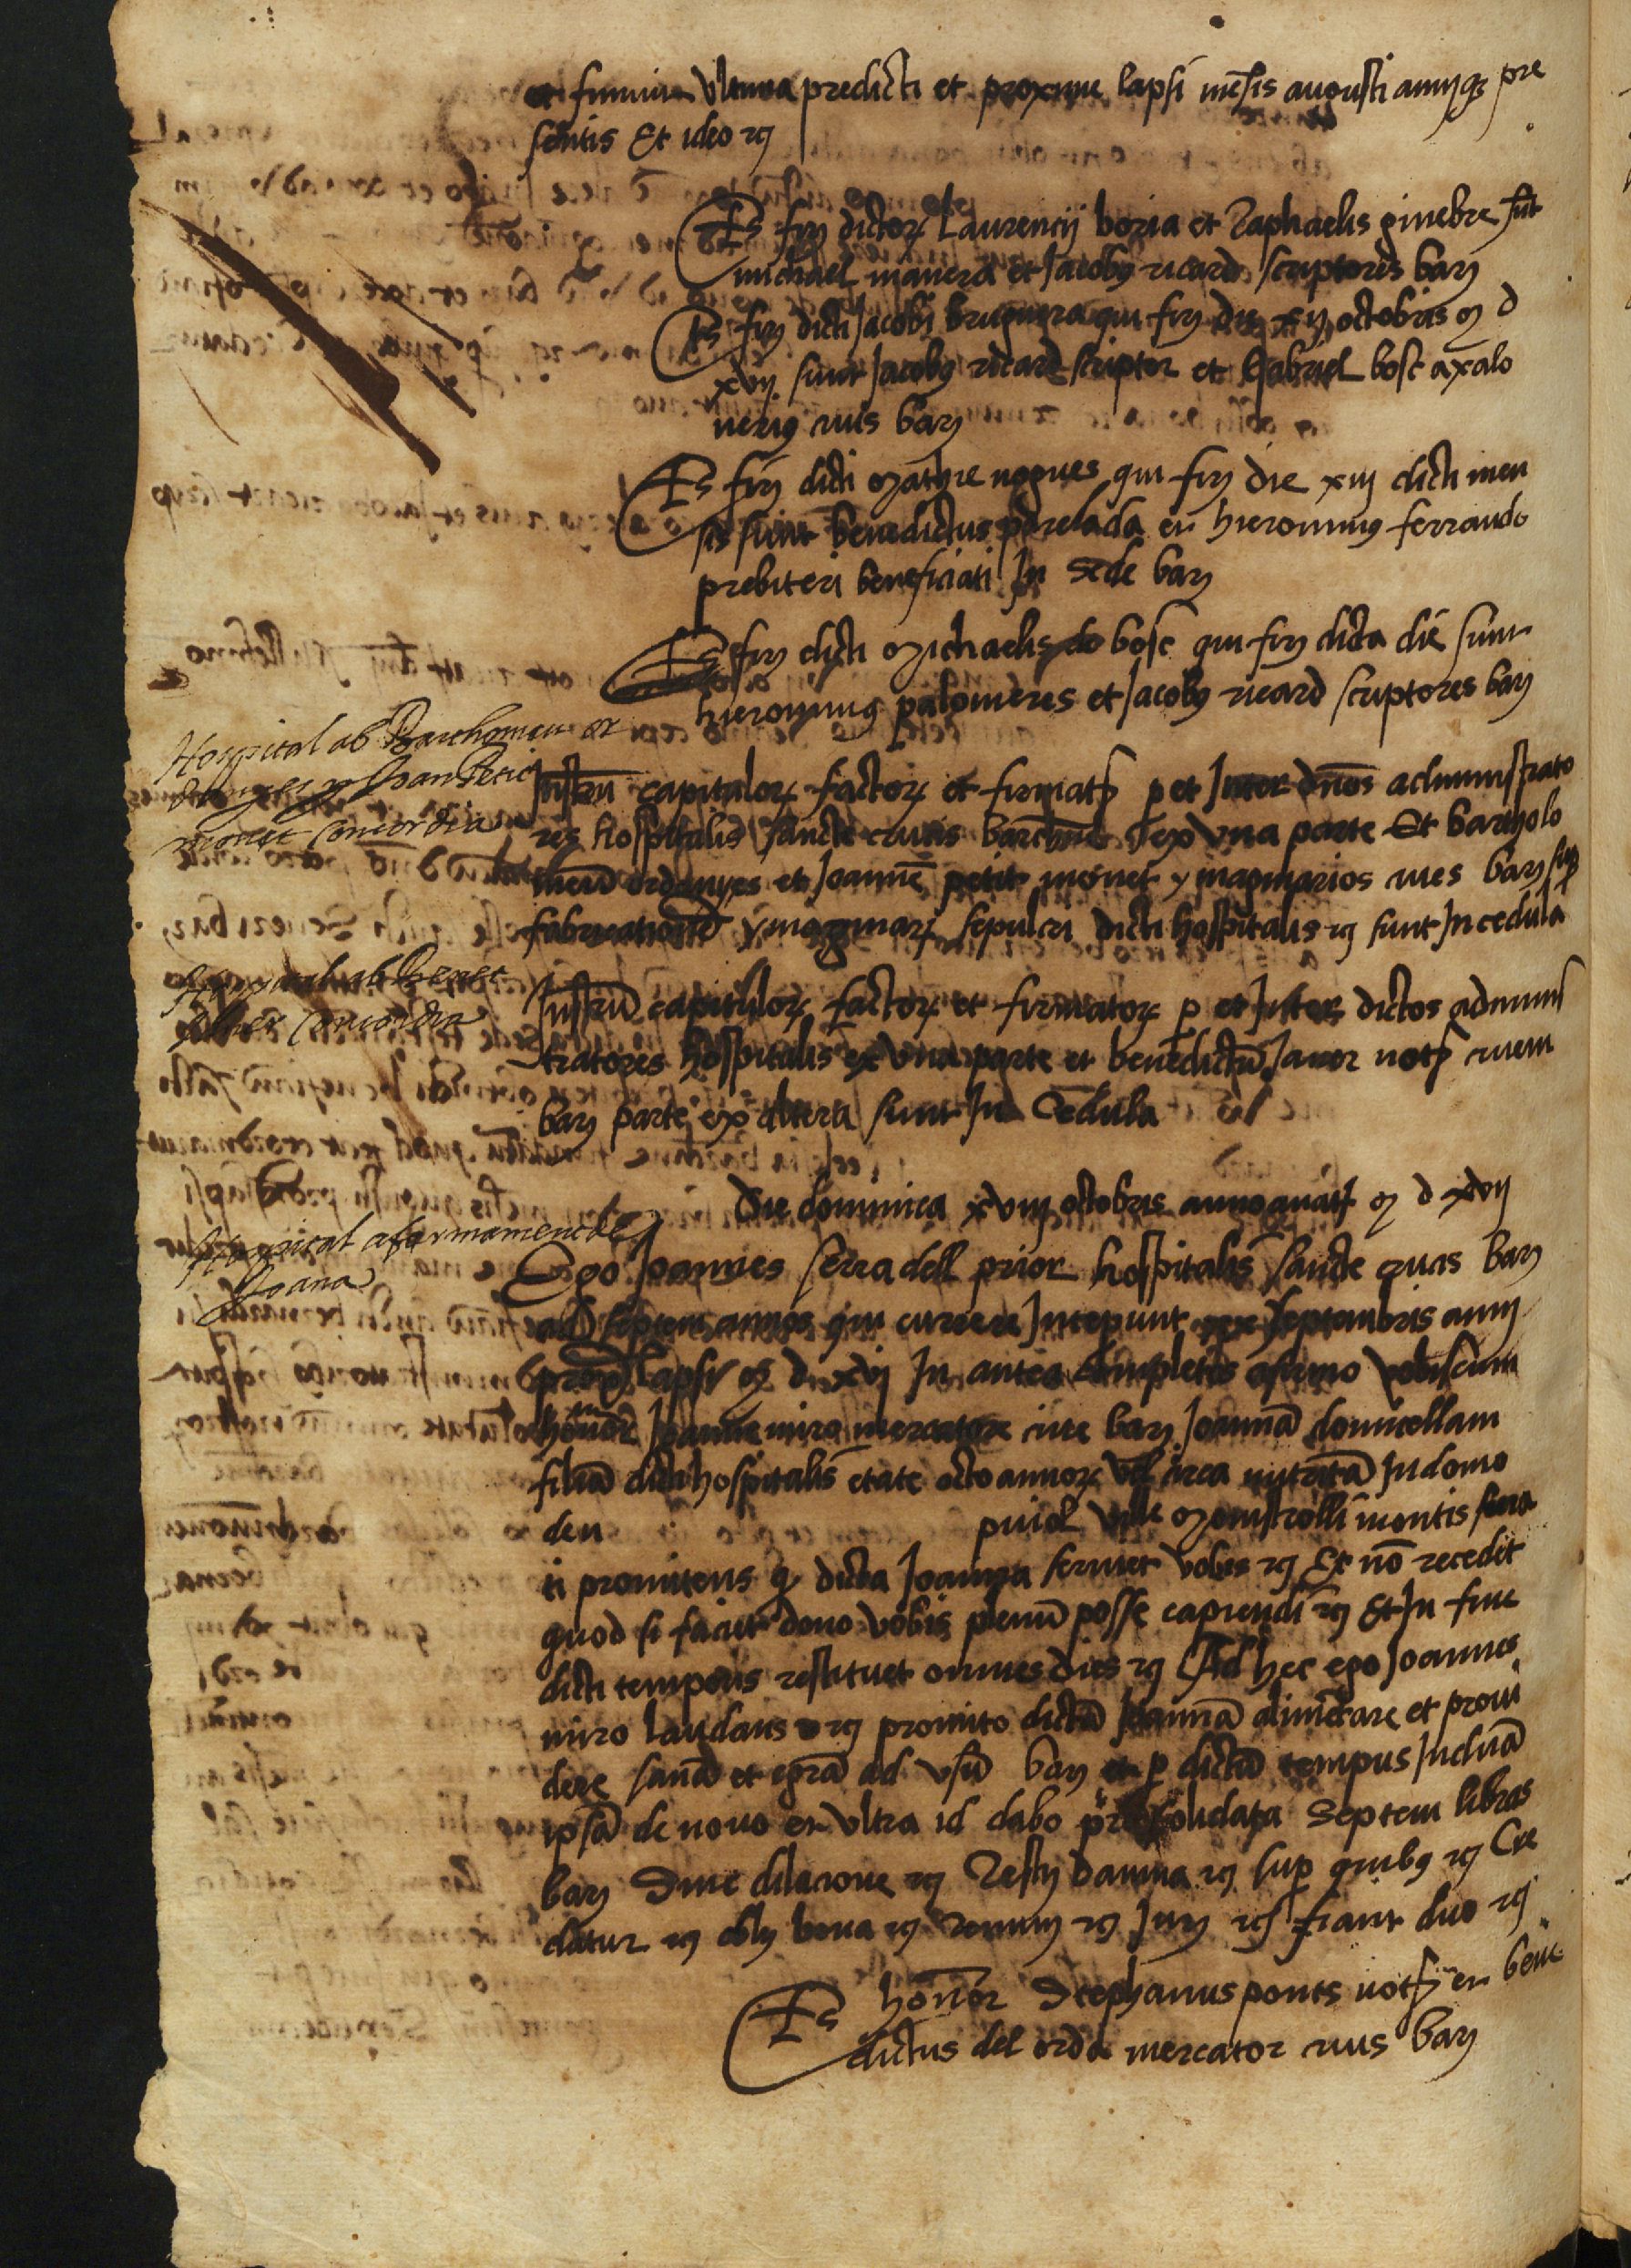 et finivit ultima predicti et proxime lapsi mẽsis augusti anniqꝫ pre
sentis Et ideo ꝛc̃
Ts̃ firᵉ dictoꝝ Laurencij boria et Raphaelis ginebre sũt
michael manera et Jacobꝰ ricard scriptores barᵉ
Ts̃ firᵉ dicti Jacobi bruguera qui firᵉ die xij octobris M d
xvij sunt Jacobꝰ ricard scriptor et Gabriel bosc axalo
neriꝰ civis barᵉ
Ts̃ firᵉ dicti Mathie nogues qui firᵉ die xiij dicti men
sis sunt benedictus perelada et hieronimꝰ ferrando
prebiteri beneficiati In Sede barᵉ
Ts̃ firᵉ dicti Michaelis de bosc qui firᵉ dicta die sunt
hieronimꝰ palomeres et Jacobꝰ ricard scriptores barᵉ
Hospital ab Barthomeu or
donyes y Joan Petit
monet concordia
Instrũ capituloꝝ factoꝝ et firmatoꝝ ꝑ et Inter dños administrato
res hospitalis sancte crucis barcñne ex una parte Et bartholo
meũ ordonyes et Joannẽ petit monet ymaginarios cives barᵉ suꝑ
fabricatione ymaginaꝝ sepulcri dicti hospitalis ꝛc̃ sunt In cedula
Hospital ab Benet
Janer concordia
Instrũ capituloꝝ factoꝝ et firmatoꝝ ꝑ et Inter dictos adminis
tratores hospitalis ex una parte et benedictũ Janer notᵐ civem
barᵉ parte ex altera sunt In Cedula
Die dominica xviij octobris anno a natᵉ M d xvij
Hospital afermament de
Joana
Ego Joannes serradell prior hospitalis sancte crucis barᵉ
ad septem annos qui currere Inceperunt septembris anni
proxᵉ lapsi M d xvj In antea completis afirmo vobiscum
honorᵉ Joanne miro mercatore cive barᵉ Joannã domicellam
filiã dicti hospitalis etate octo annoꝝ vel circa nutritã In domo
den puiol ville Monistrolli montis serra
ti promitens ꝙ dicta Joanna serviet vobis ꝛc̃ Et nõ recedet
quod si faciet dono vobis plenũ posse capiendi ꝛc̃ Et In fine
dicti temporis restituet omnes dies ꝛc̃ Ad hec ego Joannes
miro laudans ꝛc̃ promito dictã Joannã alimẽtare et provi
dere sanã et egrã ad usũ barᵉ et ꝑ dictũ tempus Induã
ipsã de novo et ultra id dabo pro solidata Septem libras
barᵉ Sine dilacione ꝛc̃ Restʸ damna ꝛc̃ suꝑ quibꝰ ꝛc̃ Cre
datur ꝛc̃ oblʸ bona ꝛc̃ Renunᵉ ꝛc̃ Jurᵉ ꝛc̃ fiant duo ꝛc̃
Ts̃ honorᵉ Stephanus ponts notᵉ et bene
dictus del orda mercator civis barᵉ